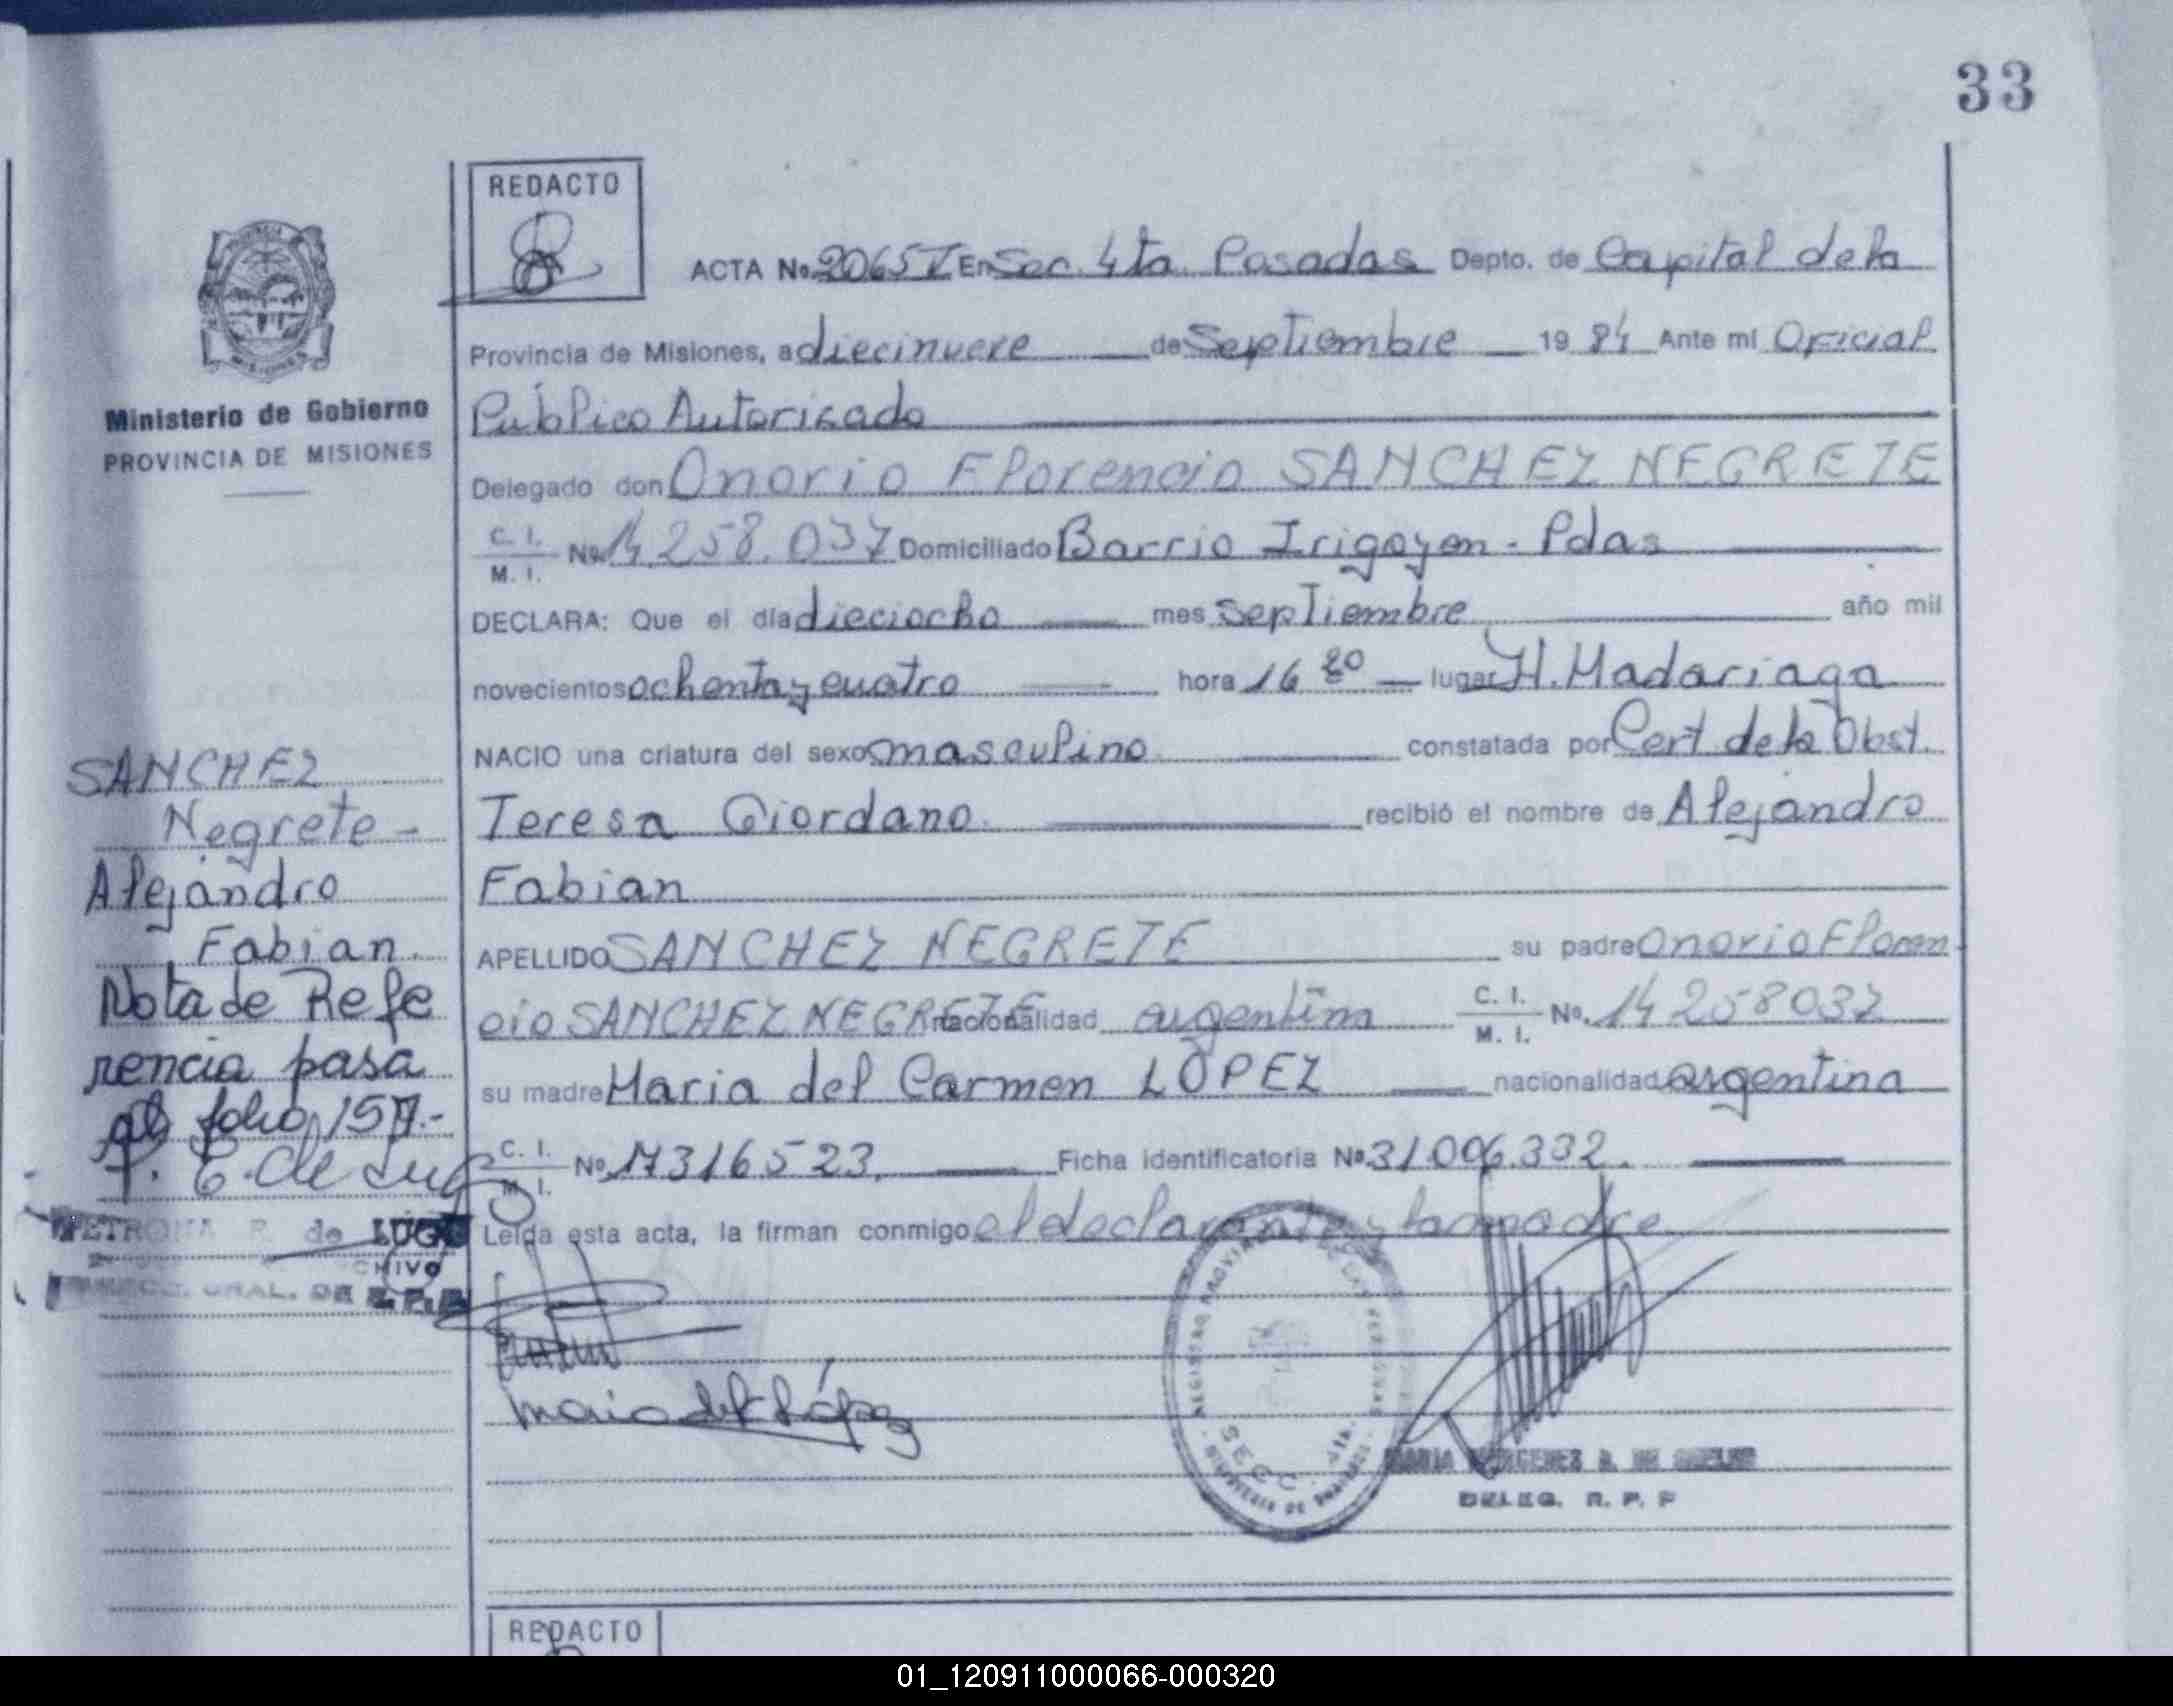 33
REDACTO
ACTA No. 2065 I En Sec. 4ta. Posadas Depto. de Capital de la
Provincia de Misiones, a diecinueve de Septiembre 19 84 Ante mi Oficial
Público Autorizado
Delegado don Onorio Florencio SANCHEZ NEGRETE
C. I.
M. I. No. 14.258.037 Domiciliado Barrio Irigoyen - Pdas
DECLARA: Que el día dieciocho mes septiembre año mil
novecientos ochenta y cuatro hora 16 lugar H. Madariaga
NACIO una criatura del sexo masculino constatada por Cert de la Obst.
Teresa Giordano recibió el nombre de Alejandro
Fabian
APELLIDO SANCHEZ NEGRETE su padre Onorio Floren
cio SANCHEZ NEGRETE nacionalidad argentina C. I.
M. I. No. 14 258 037
su madre Maria del Carmen LOPEZ nacionalidad argentina
C. I.
M. I. No. 17316523. Ficha identificatoria No. 31.006.332.
Leída esta acta, la firman conmigo el declarante y la madre
Maria del C López
REGISTRO PROVINCIAL DE LAS PERSONAS
SECC. 4ta.
MINISTERIO DE GOBIERNO
DELEG. R. P. P
Ministerio de Gobierno
PROVINCIA DE MISIONES
SANCHEZ
Negrete -
Alejandro
Fabian.
Nota de Refe
rencia pasa
al folio 157.-
P. E. de Lugo
PETRONA R. de LUGO
GRAL. DE R. P. P.
REDACTO
01_120911000066-000320